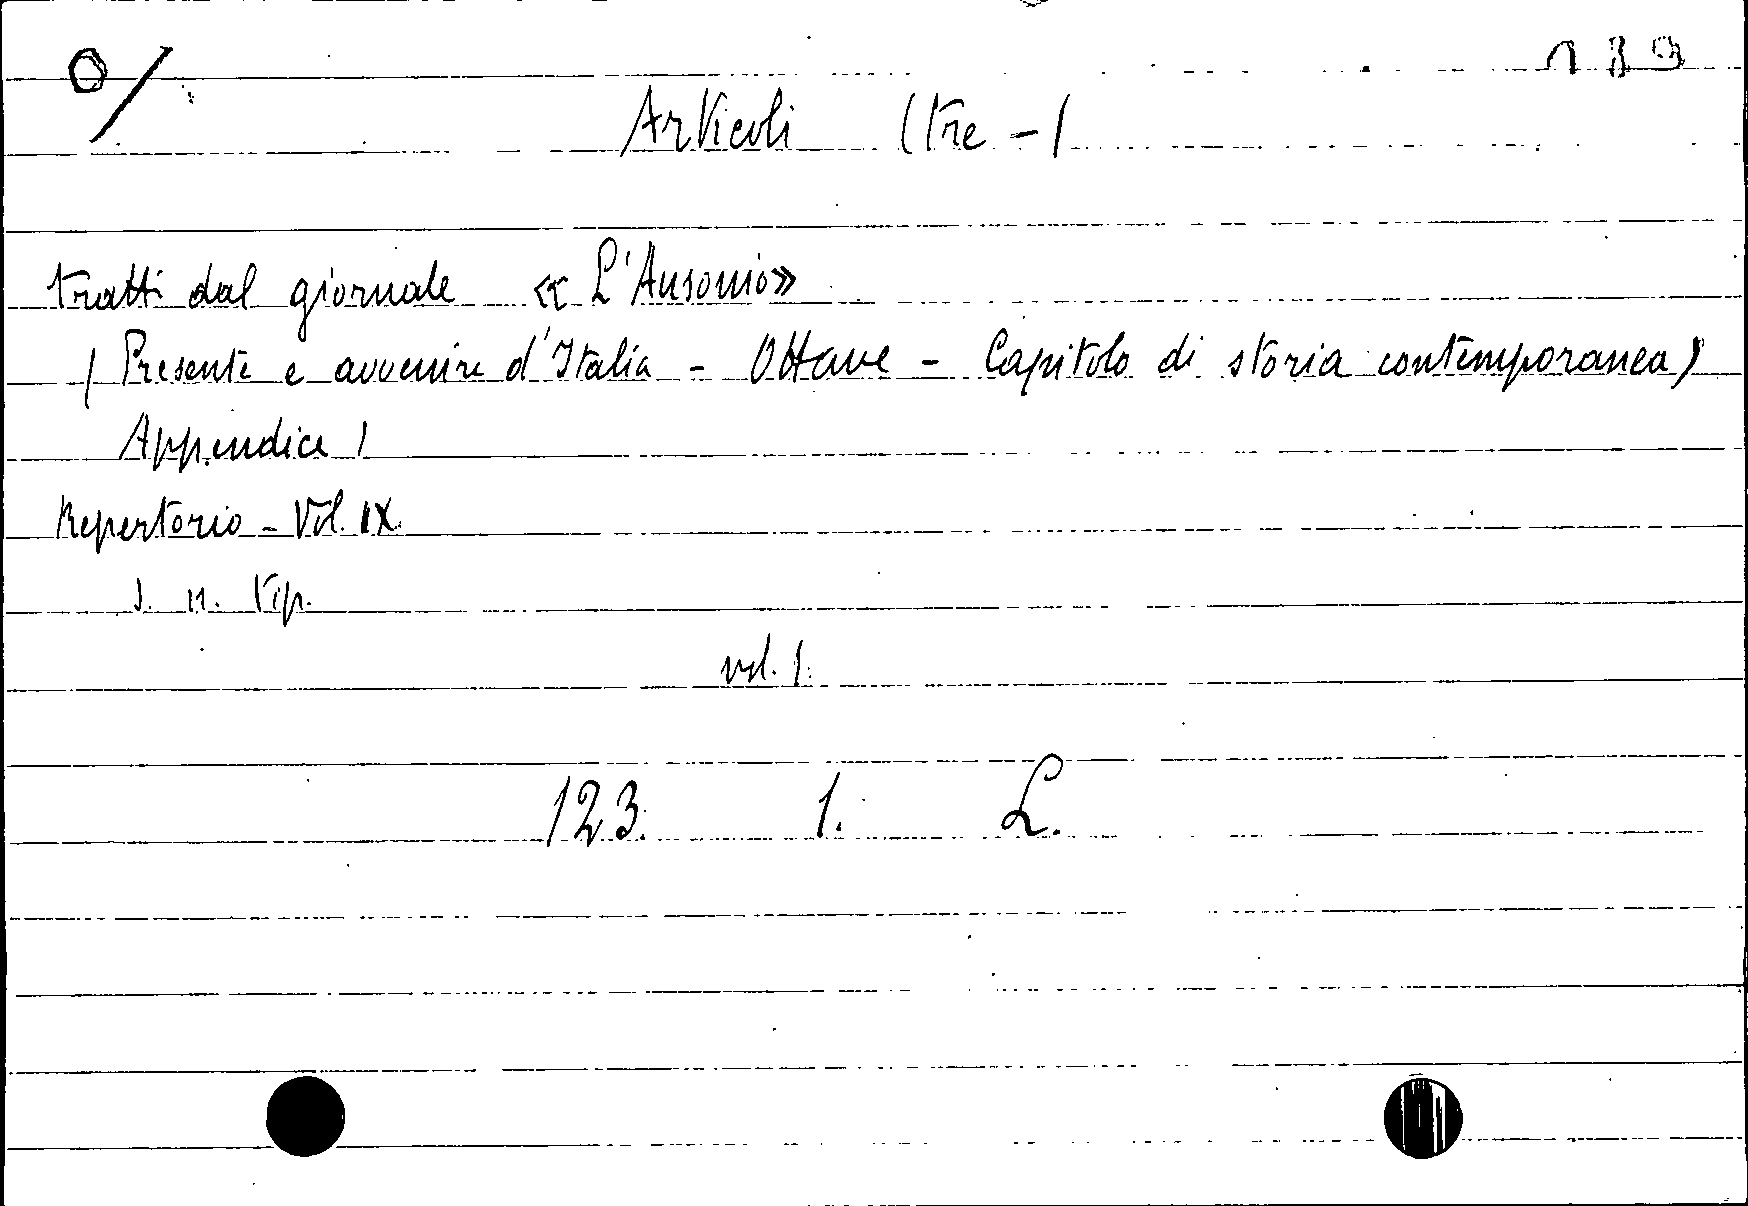 0/ 189
Articoli (tre -)
tratti dal giornale « L'Ausonio»
(Presente e avvenire d'Italia - Ottave - Capitolo di storia contemporanea)
Appendice 1
Repertorio - Vol. IX.
S. n. tip.
vol. 1.
123. 1. L.